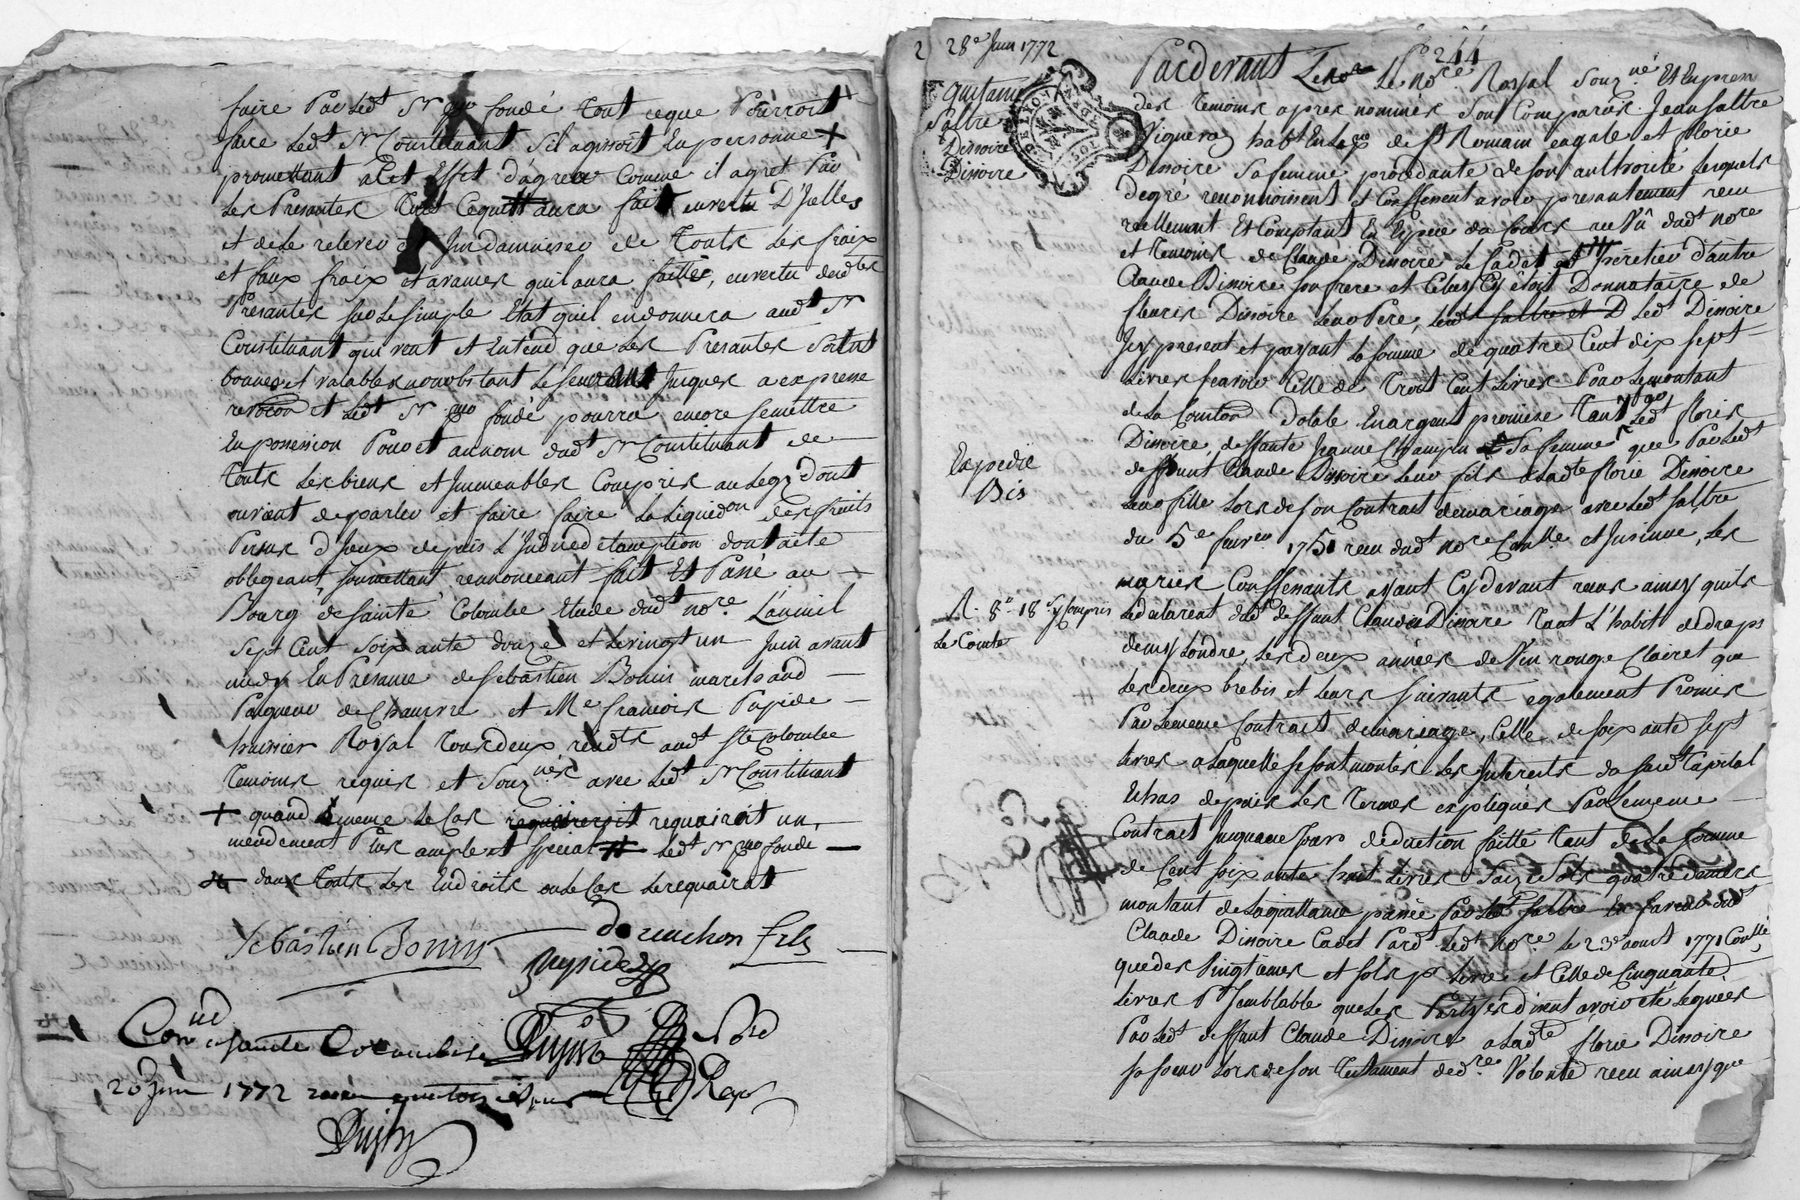 faire Par Ledt Sr pro fondé tout ceque Pourroit
faire Ledt Sr Constituant Sil agissoit En personne +
promettant a Cet Effet d'agréer Comme il agret Par
Les Presantes tout Cequil aura fait en vertu D'Jcelles
et dele relever et Jndamniser de touts Les fraix
et faux fraix et avances quil aura faittes, en vertu desdtes
Presantes sur Le simple Etat quil en donnera audt Sr
Constituant qui veut et Entend que Les Presantes Soient
bonnes et valables nonobstant Jusques a expresse
revocon et Ledt Sr pro fondé pourra encore se mettre
En possession Pour et au nom dudt Sr Constituant de
touts Les biens et Jmmeubles Compris au Legz dont
vient de parler et faire faire La Liquidon des fruits
Persus d'Jceux depuis L'Jndue detamption dont acte
obligeant, soumettant, renonceant fait Et Passé au
Bourg de Sainte Colombe Etude dudt nore L'an mil
Sept Cent Soixante douze et Le vingt un Juin avant
midy En Presance de Sebastien Bonin marchand
de et Me francois Papide
huissier Royal tous deux residts audt Ste Colombe
temoins requis et Souznes avec Ledt Sr Constituant
+ quand meme Le Cas requiereroit requairoit un
mendement Plus ample et special Ledt Sr pro fondé
dans touts Les Endroits ou Le Cas Le requairat
Sebastien Bonin
fils
Conud Sainte Colombe
20 Juin 1772
2 28e Juin 1772
244
quitance
Saltre
Dissoire
Dissoire
Pardevant Le nore Royal Souzné Et En presen
des temoins apres nommés Sont Comparus Jean Saltre
Vigneron habt En La pse de St Romain en gale et florie
Dissoire Sa femme procedante de Son authorité Lesquels
degré reconnoissent et Confessent avoir presantement receu
reellement Et Comptant En Espece du Cours au Vû dudt nore
et temoins de Claude Dissoire Le Cadet heretier d'autre
Claude Dissoire son frere et Celuy Cy étoit Donnataire de
fleuris Dissoire Leur Pere, Ledt Saltre et D Ledt Dissoire
Jcy present et payant La somme de quatre Cent dix sept
Livres scavoir Celle de trois Cent Livres Pour Le montant
de La Constion dotale En argent promise tant Par Ledt floris
Dissoire, deffunte Jeanne Champin Sa femme que Par Ledt
deffunt Claude Dissoire Leur fils a Ladte florie Dissoire
Leur fille Lors de son Contract de mariage avec Ledt Saltre
du 5e fevrer 1751 receu dudt nore Conlle et Jnsinue, Les
mariés Confessants ayant Cy devant receus ainsy quils
Le declarent dudt deffunt Claude Dissoire tant L'habit de draps
demy Londre, Les deux années de Vin rouge Clairet que
Les deux brebis et Leurs suivants egalement Promis
Par Le meme Contract de mariage, Celle de soixante sept
Livres a Laquelle se sont montés Les Jnterets du susdt Capital
Echus depuis Les termes expliqués Par Le meme
Contract Jusquaujourd'huy deduction faitte tant de La somme
de Cent soixante huit Livres Seize Sols quatre deniers
montant de La quittance passée Par Ledt Saltre En faveur dudt
Claude Dissoire Cadet Pardt Ledt nore Le 23e aoust 1771 Conllé
que des Vingtiemes et sols p Livre et Celle de Cinquante
Livres Pr Semblable que Les Parties disent avoir eté Leguées
Par Ledt deffunt Claude Dissoire a Ladte florie Dissoire
sa soeur Lors de son testament de dre Volonté receu ainsy que
Expedié
Bis
R. 8# 18s y Compris
Le Comte